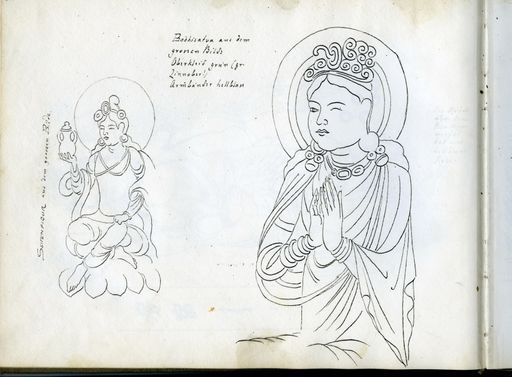 Boddisatva aus dem
grossen Bilde
Oberkleid grün (gr
Zinnober!)
Armbänder hellblau
aus dem grossen Bilde